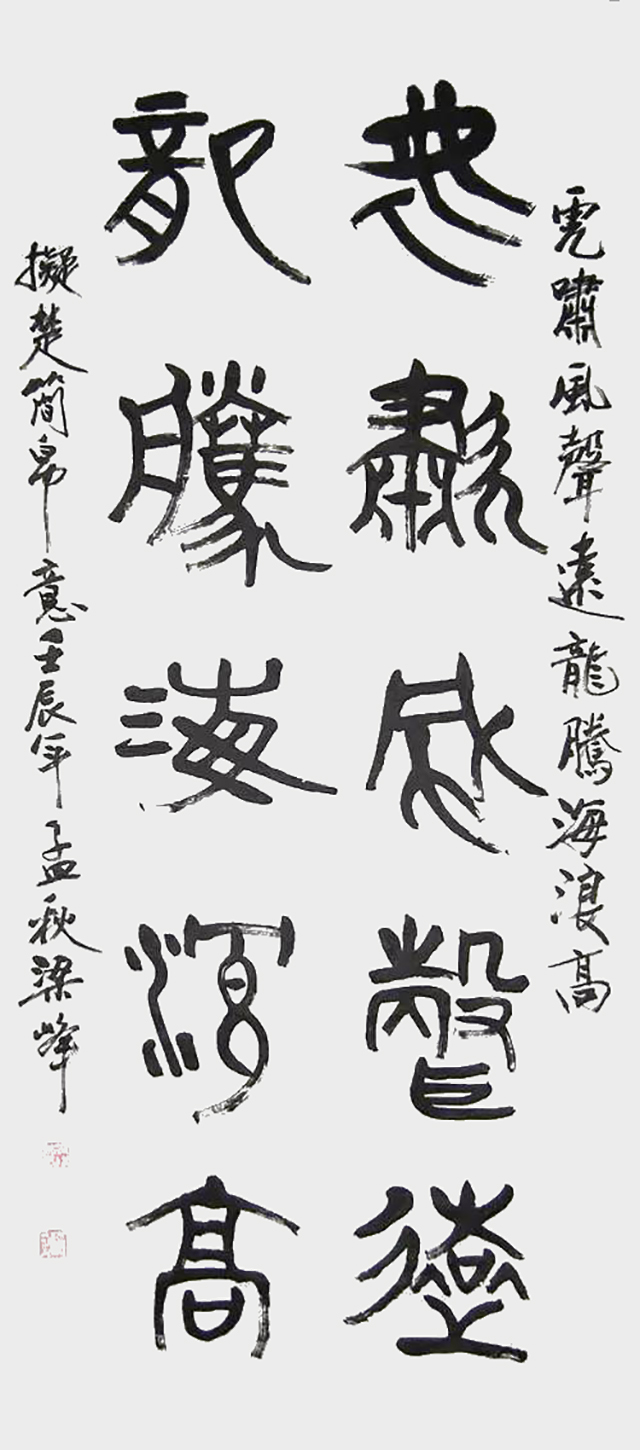 虎嘯風聲遠龍騰海浪高
虎嘯風聲遠
龍騰海浪高
擬楚簡帛意壬辰年孟秋梁峰